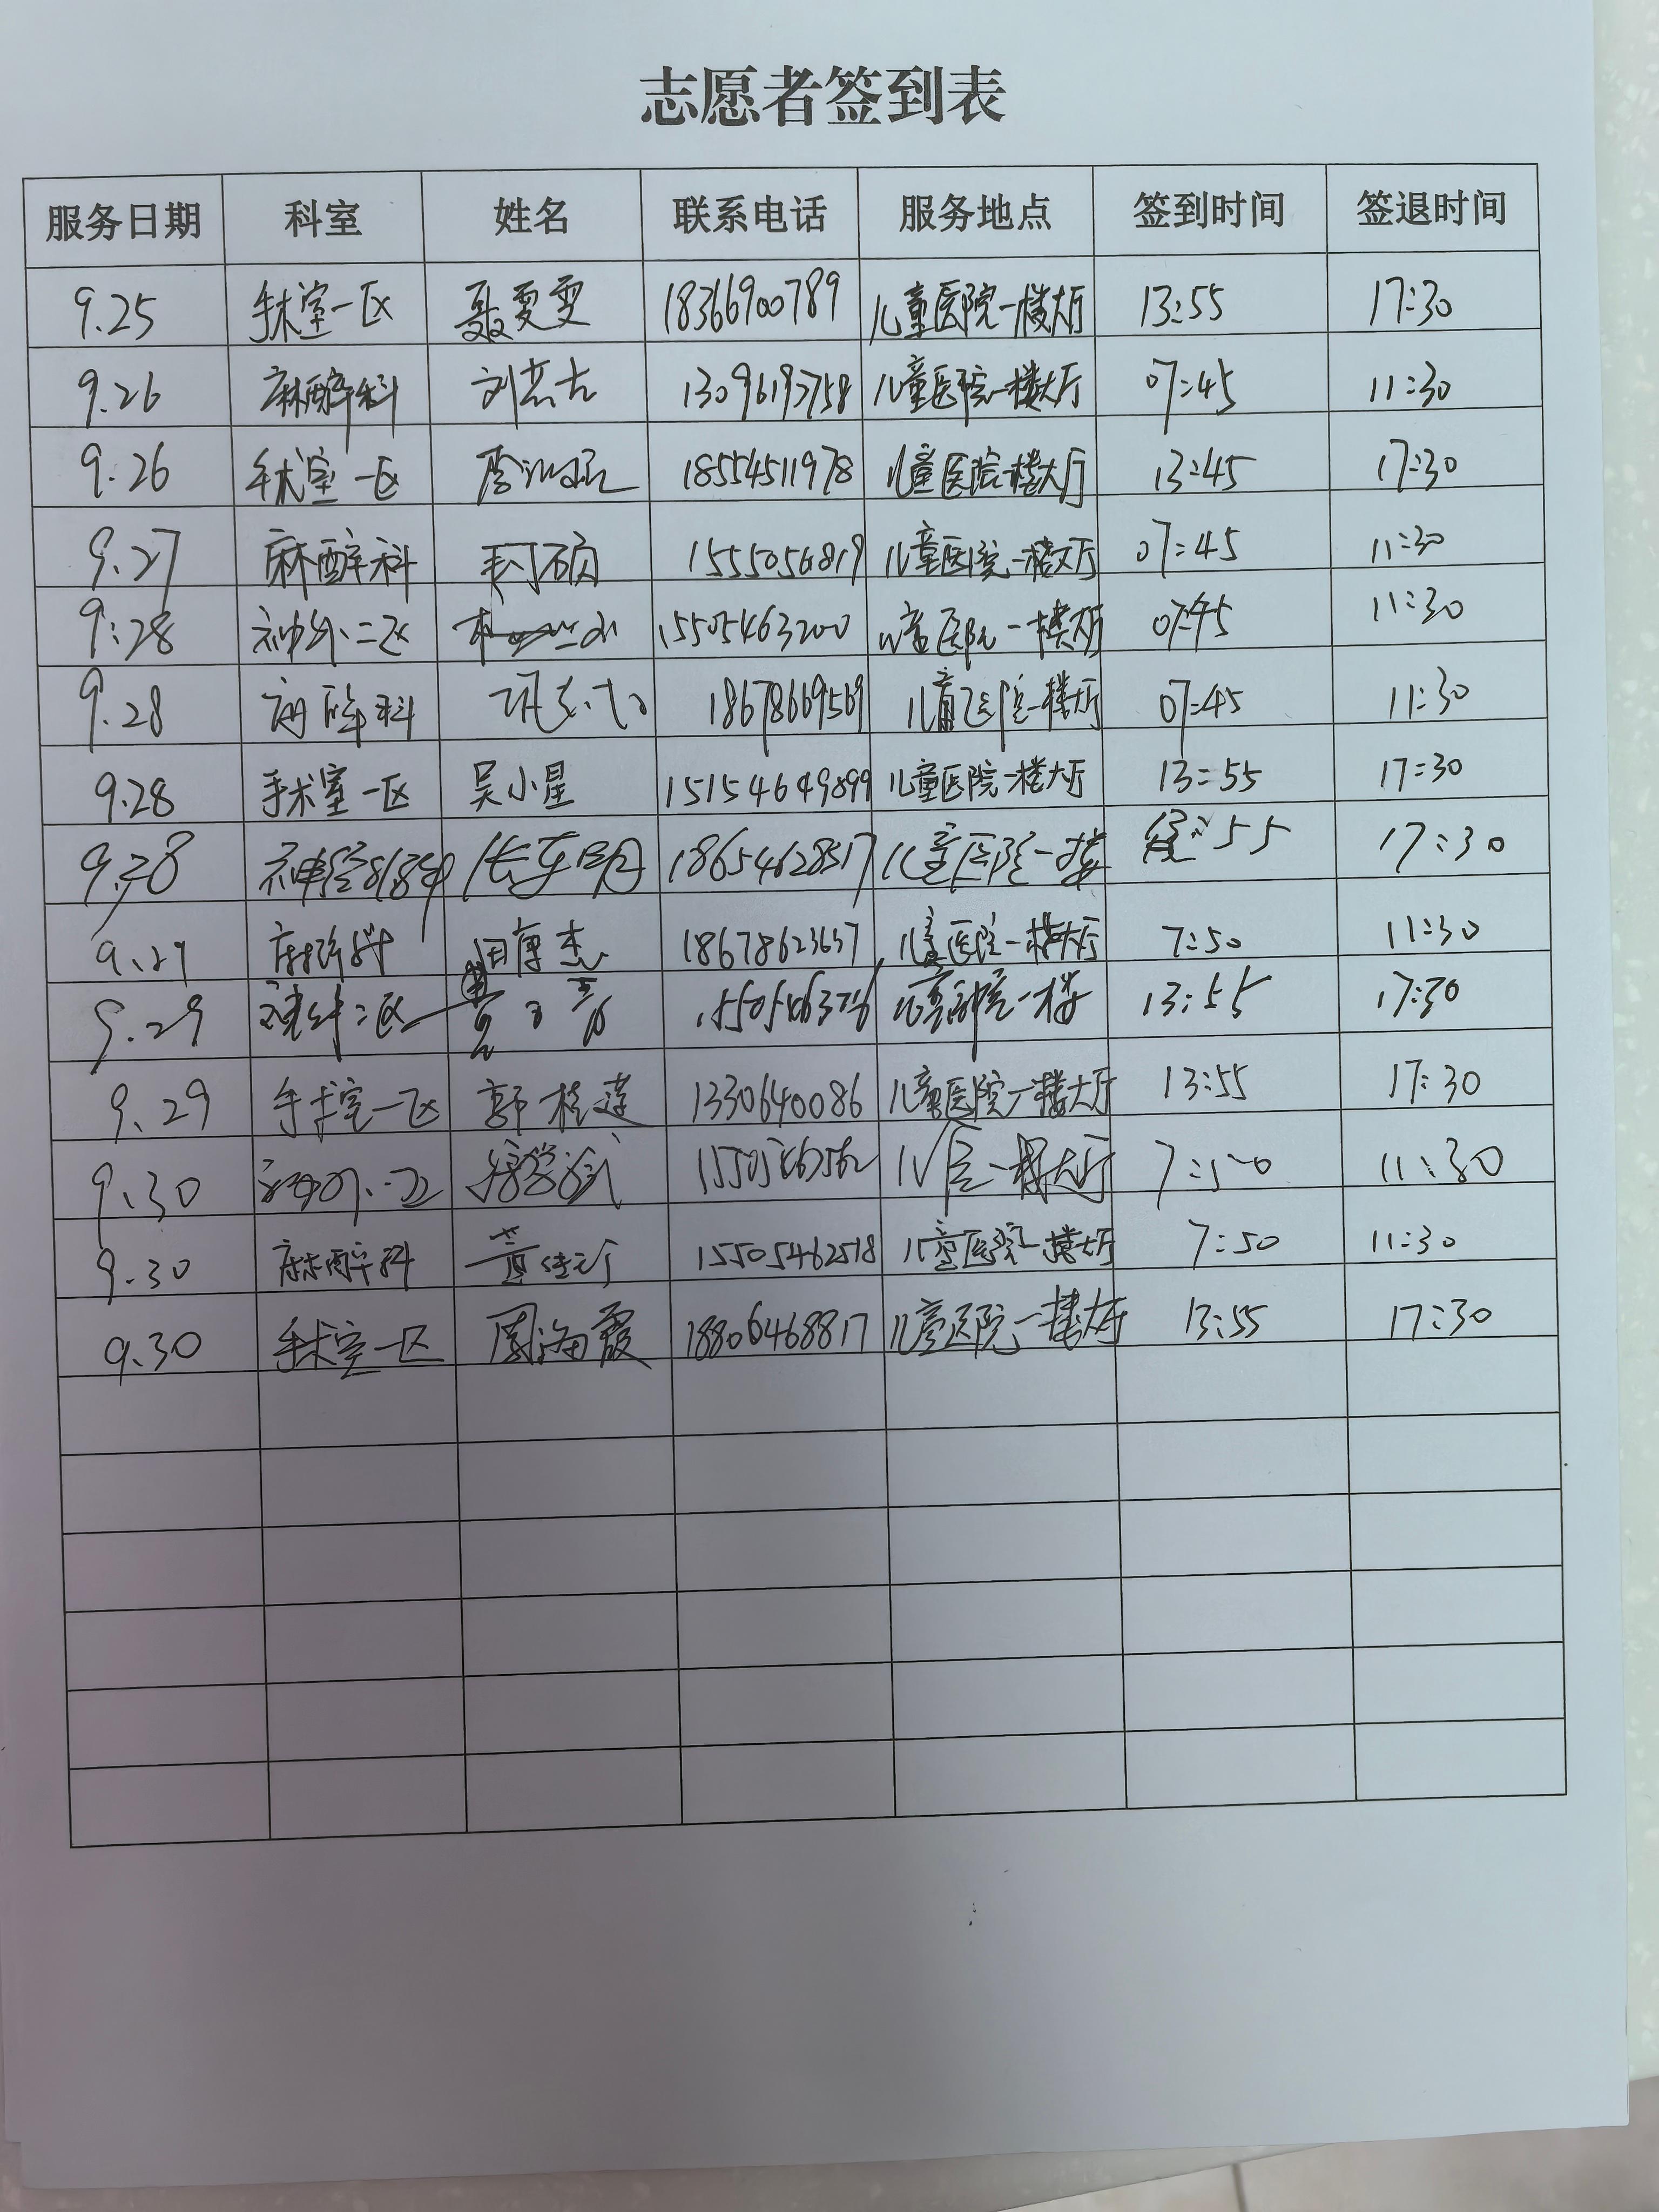 志愿者签到表
服务日期 科室 姓名 联系电话 服务地点 签到时间 签退时间
9.25 手术室一区 聂雯雯 18366900789 儿童医院一楼大厅 13:55 17:30
9.26 麻醉科 13096193758 儿童医院一楼大厅 07:45 11:30
9.26 手术室一区 18554511978 儿童医院一楼大厅 13:45 17:30
9.27 麻醉科 封硕 15550564819 儿童医院一楼大厅 07:45 11:30
9:28 神外二区 15505463200 儿童医院一楼大厅 07:45 11:30
9.28 麻醉科 18678669569 儿童医院一楼大厅 07:45 11:30
9.28 手术室一区 吴小星 15154649899 儿童医院一楼大厅 13:55 17:30
9.28 神经外科 张车明 18654628517 儿童医院一楼 17:30
9.29 18678623637 儿童医院一楼大厅 7:50 11:30
9.29 二区 儿童医院一楼 13:55 17:30
9.29 手术室一区 郭桂莲 1330640086 儿童医院一楼大厅 13:55 17:30
9.30 一楼大厅 7:50 11:30
9.30 麻醉科 15505462518 儿童医院一楼大厅 7:50 11:30
9.30 手术室一区 周海霞 18806468817 儿童医院一楼大厅 13:55 17:30